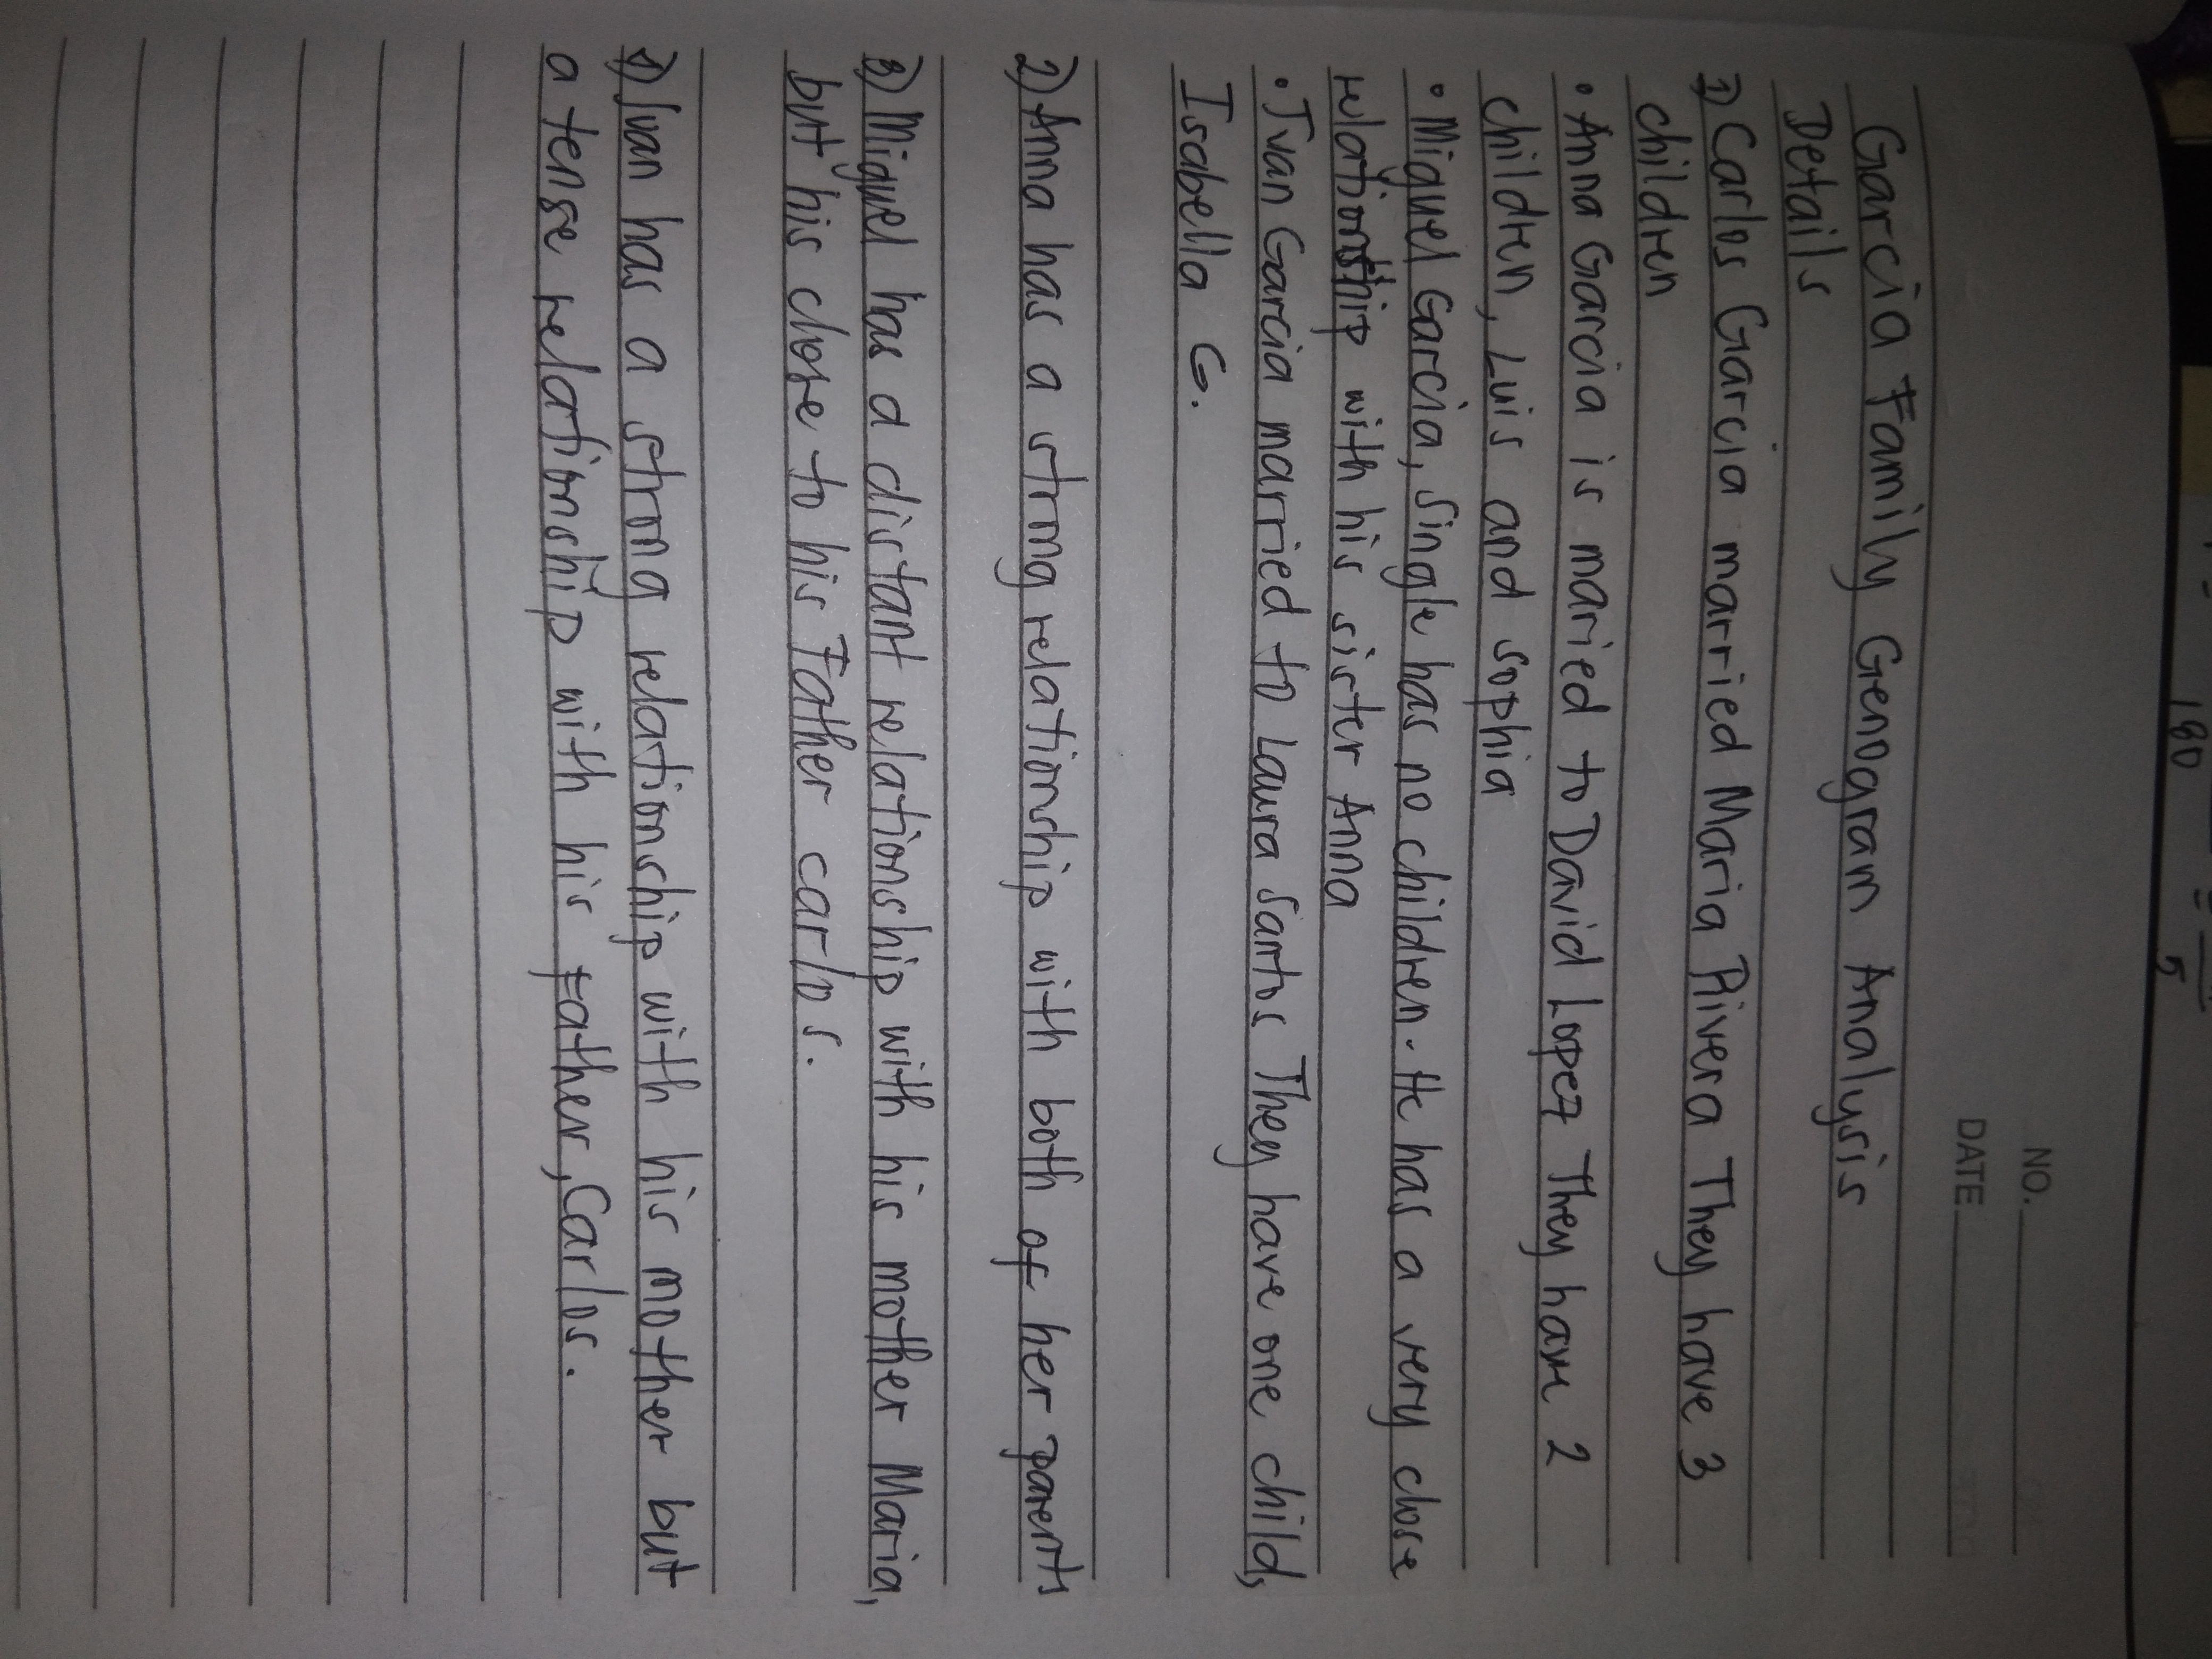 NO.
DATE
Garcia Family Genogram Analysis
Details
1) Carlos Garcia married Maria Rivera They have 3
children
• Anna Garcia is maried to David Lopez They have 2
children, Luis and sophia
• Miguel Garcia, single has no children. He has a very close
relationship with his sister Anna
• Ivan Garcia married to Laura Santos They have one child,
Isabella G.
2) Anna has a strong relationship with both of her parents
3) Miguel has a distant relationship with his mother Maria,
but his close to his Father carlos.
4) Ivan has a strong relationship with his mother but
a tense relationship with his father, Carlos.
180
5